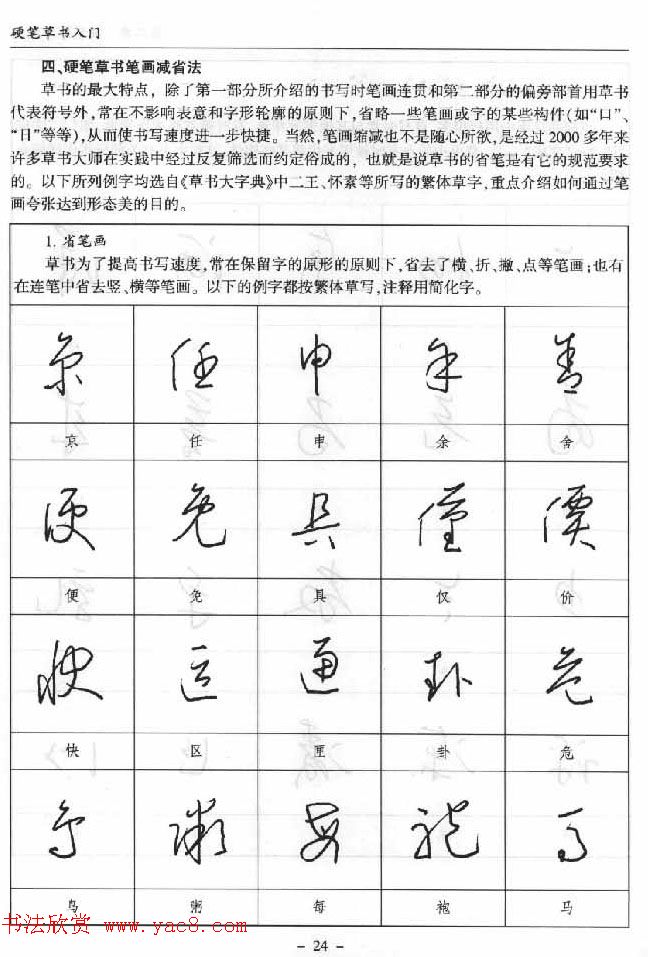 硬笔草书入门
四、硬笔草书笔画减省法
草书的最大特点，除了第一部分所介绍的书写时笔画连贯和第二部分的偏旁部首用草书
代表符号外，常在不影响表意和字形轮廓的原则下，省略一些笔画或字的某些构件(如“口”、
“日”等等)，从而使书写速度进一步快捷。当然，笔画缩减也不是随心所欲，是经过2000多年来
许多草书大师在实践中经过反复筛选而约定俗成的，也就是说草书的省笔是有它的规范要求
的。以下所列例字均选自《草书大字典》中二王、怀素等所写的繁体草字，重点介绍如何通过笔
画夸张达到形态美的目的。
1. 省笔画
草书为了提高书写速度，常在保留字的原形的原则下，省去了横、折、撇、点等笔画；也有
在连笔中省去竖、横等笔画。以下的例字都按繁体草写，注释用简化字。
京 任 申 余 舍
京 任 申 余 舍
便 免 具 僅 價
便 免 具 仅 价
快 区 匣 卦 危
快 区 匣 卦 危
鸟 粥 每 袍 马
鸟 粥 每 袍 马
书法欣赏 www.yac8.com
- 24 -